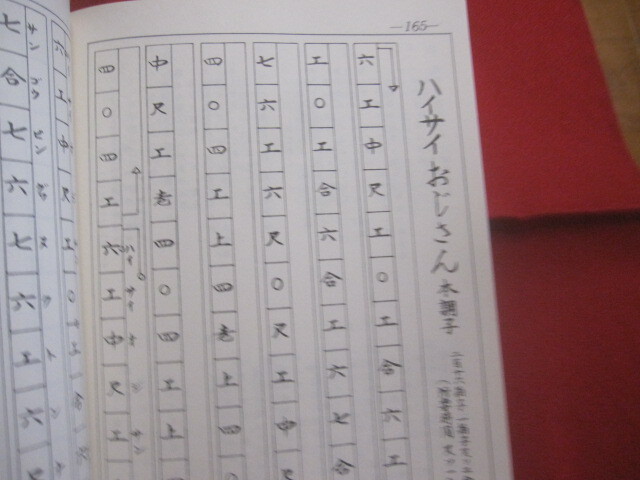 —165—
ハイサイおじさん 本調子
六工中尺工〇工合六工
工〇工合六合工六七合
七六工六尺〇尺工中尺
四〇四工上四老上四〇
中尺工老四〇四工上
四〇四工六工中尺工
六工中尺工〇工合
七合七六七六工六尺